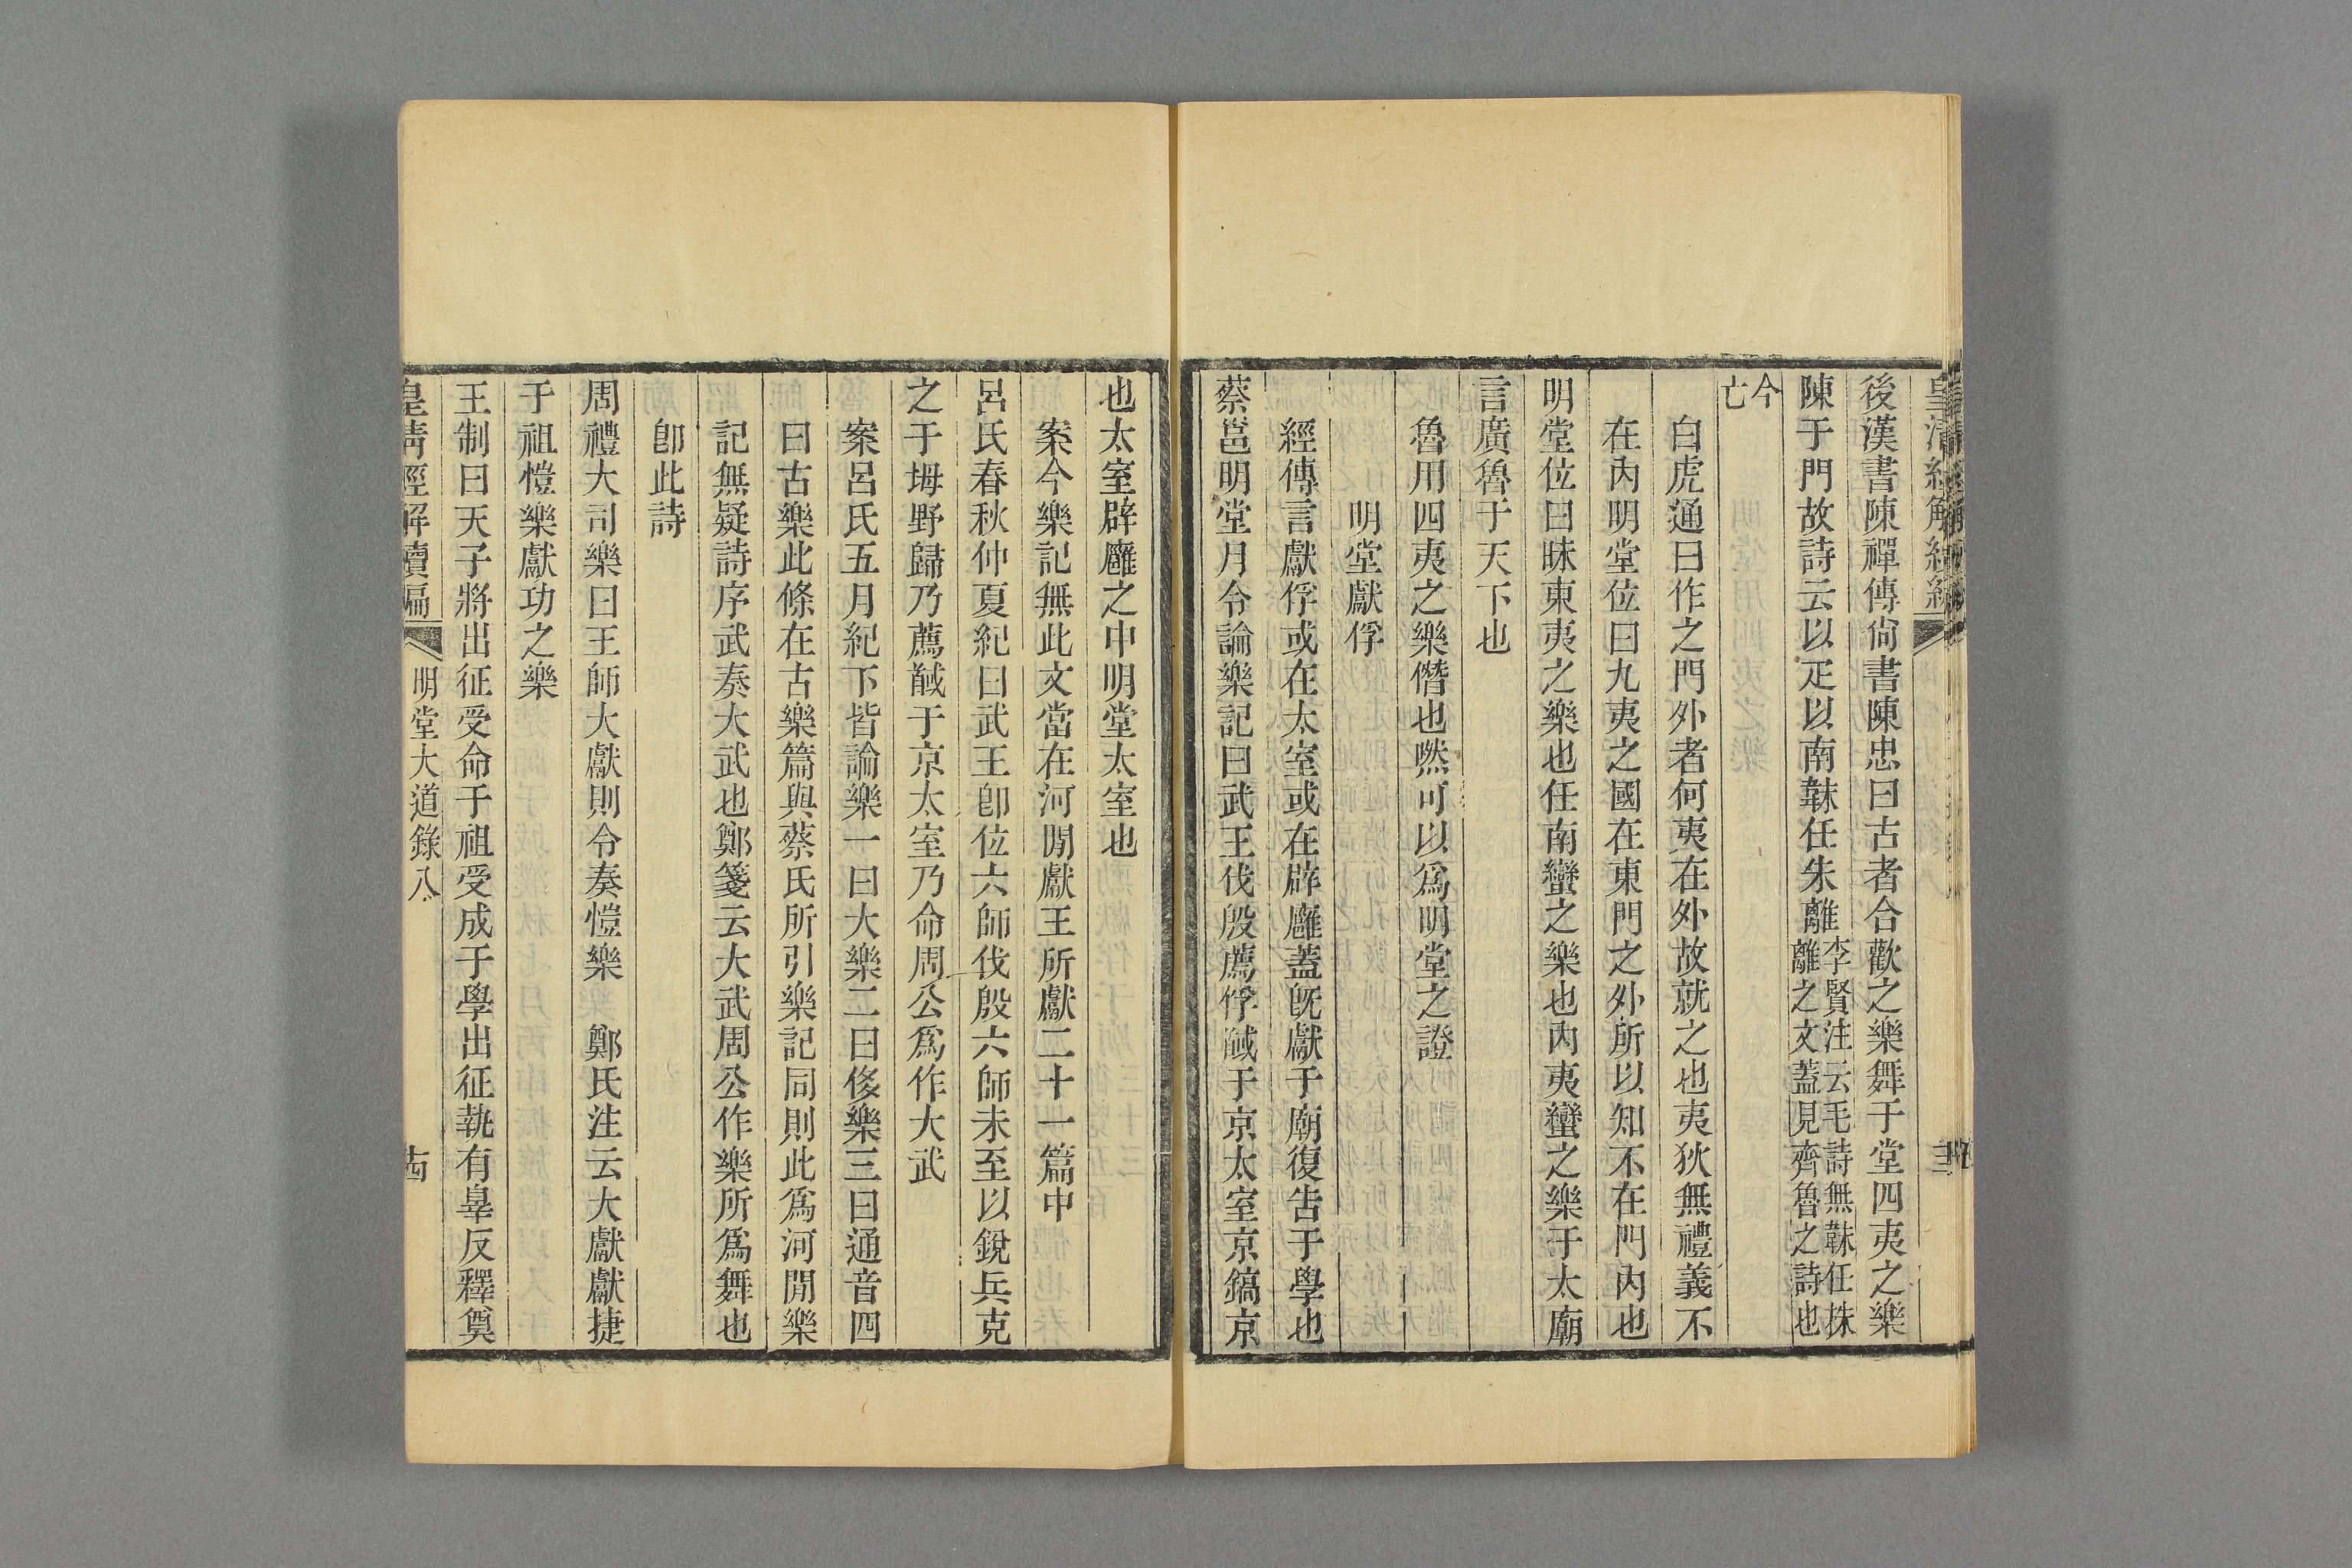 後漢書陳禪傳尙書陳忠曰古者合歡之樂舞于堂四夷之樂
陳于門故詩云以疋以南韎任朱離李賢注云毛詩無韎任株
離之文蓋見齊魯之詩也
今
亡
白虎通曰作之門外者何夷在外故就之也夷狄無禮義不
在內明堂位曰九夷之國在東門之外所以知不在門內也
明堂位曰昧東夷之樂也任南蠻之樂也內夷蠻之樂于太廟
言廣魯于天下也
魯用四夷之樂僭也嘫可以爲明堂之證
明堂獻俘
經傳言獻俘或在太室或在辟廱蓋旣獻于廟復告于學也
蔡邕明堂月令論樂記曰武王伐殷薦俘馘于京太室京鎬京
也太室辟廱之中明堂太室也
案今樂記無此文當在河閒獻王所獻二十一篇中
呂氏春秋仲夏紀曰武王卽位六師伐殷六師未至以銳兵克
之于坶野歸乃薦馘于京太室乃命周公爲作大武
案呂氏五月紀下皆論樂一曰大樂二曰侈樂三曰通音四
曰古樂此條在古樂篇與蔡氏所引樂記同則此爲河閒樂
記無疑詩序武奏大武也鄭箋云大武周公作樂所爲舞也
卽此詩
周禮大司樂曰王師大獻則令奏愷樂　鄭氏注云大獻獻捷
于祖愷樂獻功之樂
王制曰天子將出征受命于祖受成于學出征執有辠反釋奠
皇淸經解續編
明堂大道錄八
古